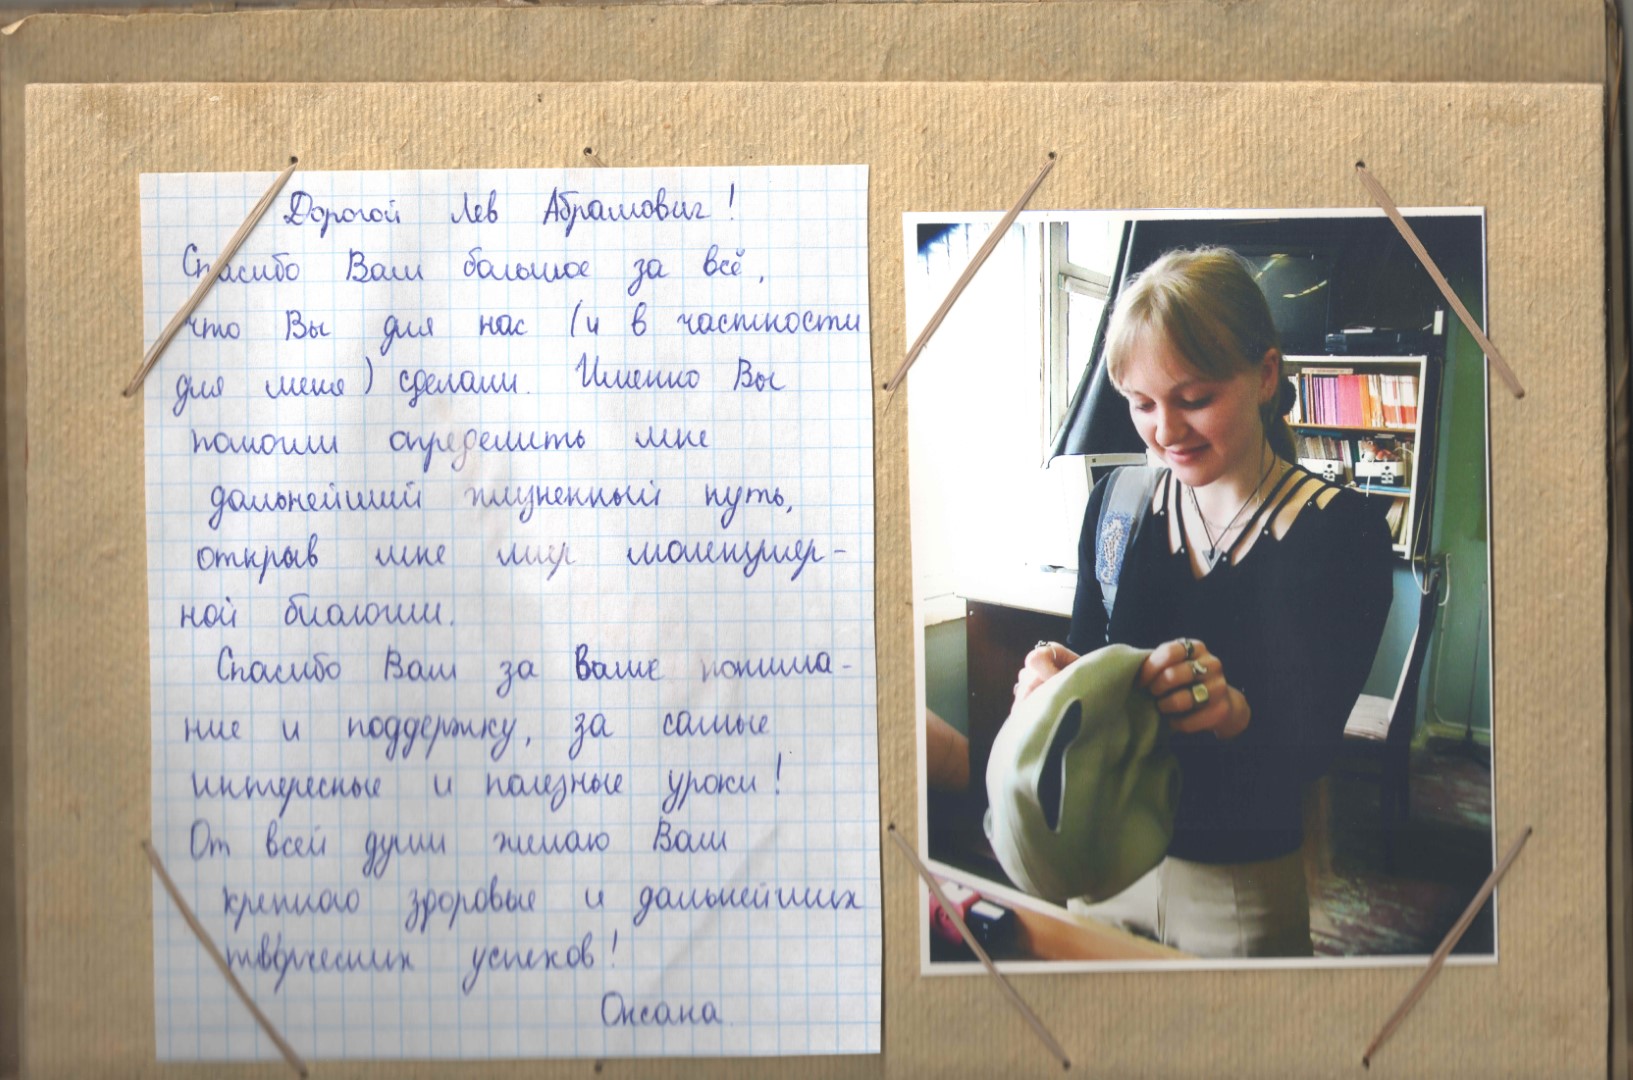 Дорогой Лев Абрамович!
Спасибо Вам большое за всё,
что Вы для нас (и в частности
для меня) сделали. Именно Вы
помогли определить мне
дальнейший жизненный путь,
открыв мне мир молекуляр-
ной биологии.
Спасибо Вам за Ваше понима-
ние и поддержку, за самые
интересные и полезные уроки!
От всей души желаю Вам
крепкого здоровья и дальнейших
творческих успехов!
Оксана.